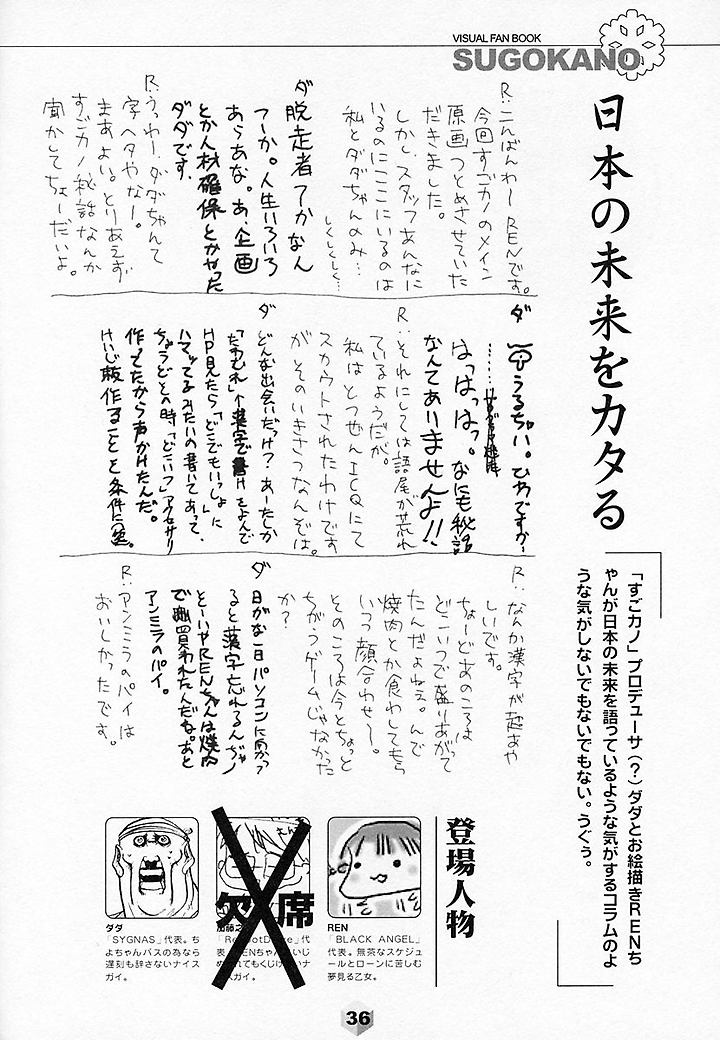 VISUAL FAN BOOK
SUGOKANO
日本の未来をカタる
「すごカノ」プロデューサ（？）ダダとお絵描きRENち
ゃんが日本の未来を語っているような気がするコラムのよ
うな気がしないでもないでもない。うぐぅ。
R:こんばんわー RENです。
今回すごカノのメイン
原画つとめさせていた
だきました。
しかし、スタッフあんなに
いるのにここにいるのは
私とダダちゃんのみ…
しくしくしく…
ダ 脱走者てかなん
つーか。人生いろいろ
あらあな。あ、企画
とか人材確保とかやった
ダダです。
R:うっわー、ダダちゃんて
字ヘタやなー。
まあよい。とりあえず
すごカノ秘話なんか
聞かしてちょーだいよ。
ダ うるちゃい。ひわですか？
………
は、はっはっ。なにも秘話
なんてありませんよ!!
R:それにしては語尾が荒れ
ているようだが。
私はとつぜんICQにて
スカウトされたわけです
がそのいきさつなんぞは。
ダ どんな出会いだっけ？あーたしか
「たわむれ」↑漢字で書けをよんで
HP見たら「どこでもいっしょ」に
ハマってるみたいの書いてあって、
ちょうどその時「どこいつ」アクセサリ
作ってたから声かけたんだ。
けいじ板作ることを条件に(笑)。
R:なんか漢字が越あや
しいです。
ちょーどあのころは
どこいつで盛りあがって
たんだよねぇ。んで
焼肉とか食わしてもら
いつつ顔合わせ〜。
そのころは今とちょっと
ちがうゲームじゃなかった
か？
ダ 日がな一日パソコンに向かって
ると漢字忘れるんぢゃ！
とーいやRENちゃんは焼肉
で買われたんだな。あと
アンミラのパイ。
R:アンミラのパイは
おいしかったです。
登場人物
REN
「BLACK ANGEL」
代表。無茶なスケジュ
ールとローンに苦しむ
夢見る乙女。
欠席
ダダ
「SYGNAS」代表。ち
よちゃんバスの為なら
遅刻も辞さないナイス
ガイ。
36